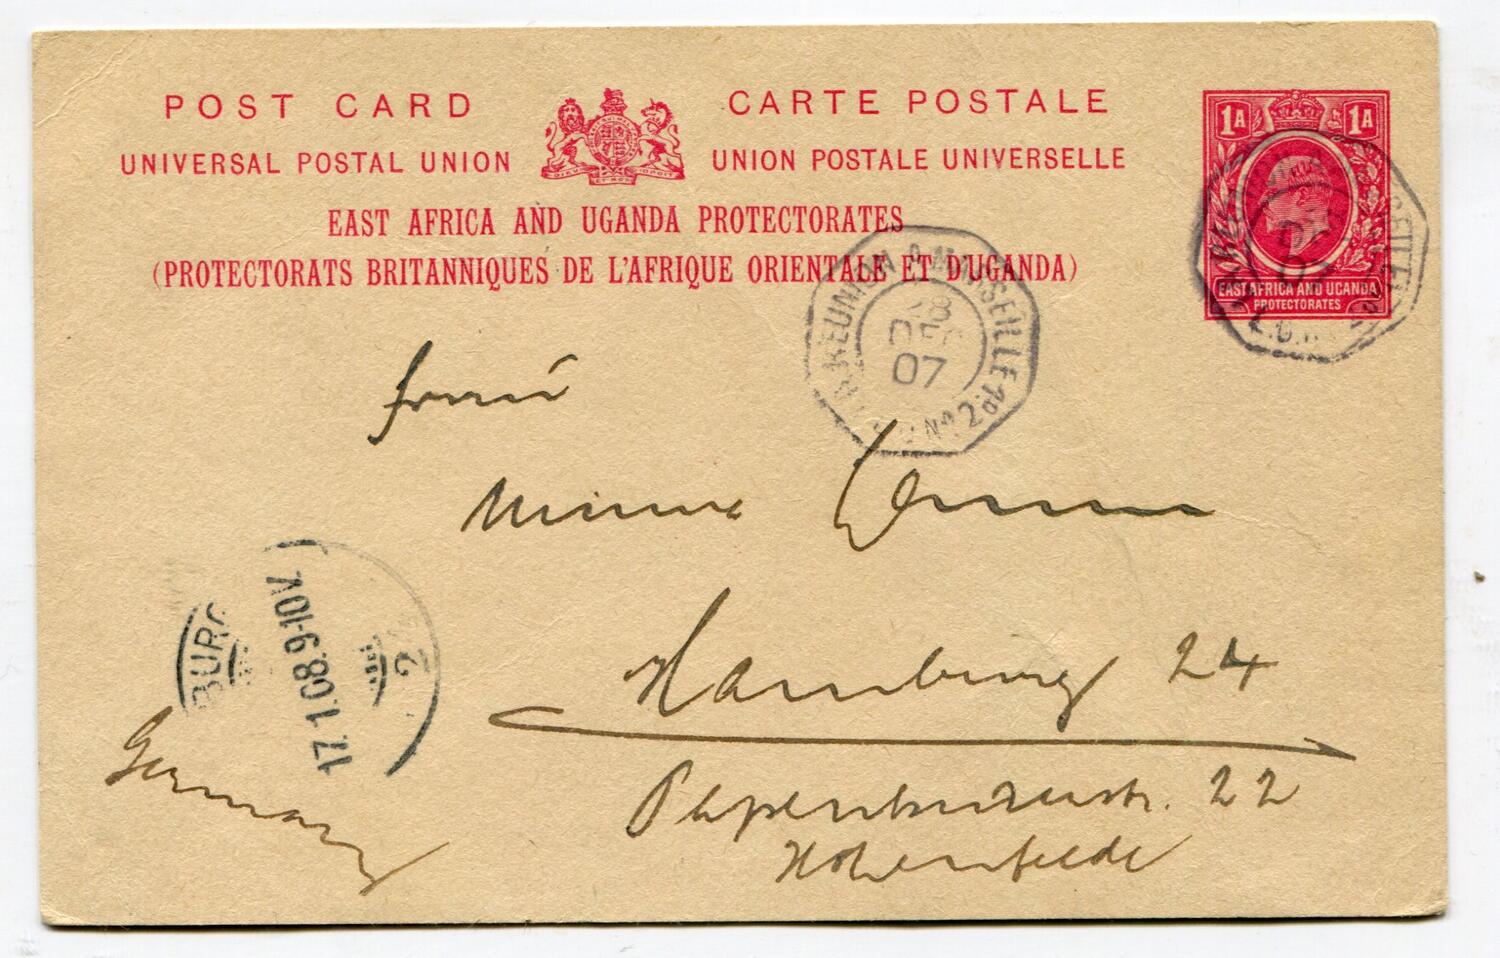 POST CARD
CARTE POSTALE
UNIVERSAL POSTAL UNION
UNION POSTALE UNIVERSELLE
DIEU ET MON DROIT
EAST AFRICA AND UGANDA PROTECTORATES
(PROTECTORATS BRITANNIQUES DE L'AFRIQUE ORIENTALE ET D'UGANDA)
1A 1A
EAST AFRICA AND UGANDA
PROTECTORATES
REUNION A MARSEILLE
28
DEC
07
No. 2
Minna
Hamburg 24
22
Hohenfelde
Germany
BURG
17.1.08.9-10V.
2